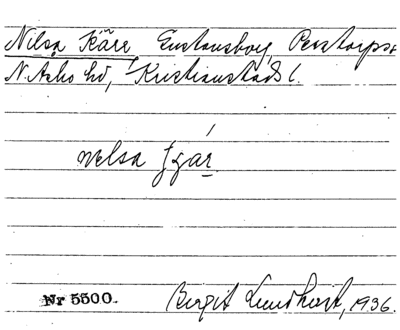 Nilsa Käre Gustavsborg, Perstorps s
N. Åsbo hd, Kristianstads l.
nelsa
Nr 5500. Birgit Lundkvist, 1936.